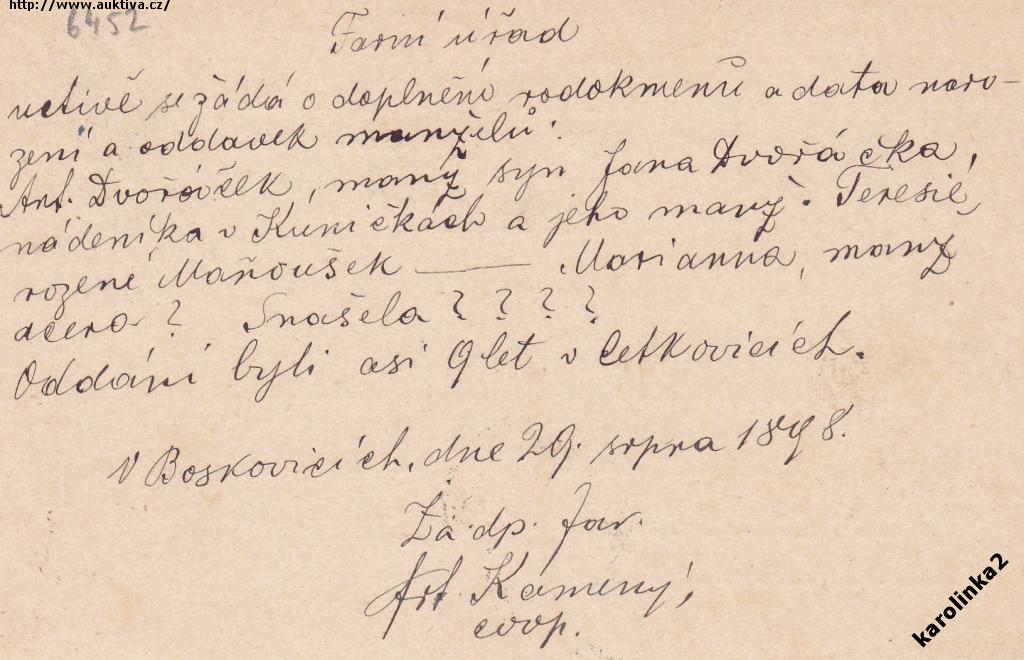 http://www.auktiva.cz/
6452
Farní úřad
uctivě se žádá o doplnění rodokmenu a data naro-
zení a oddavek manželů:
Ant. Dvořáček, manž syn Jana Dvořáčka,
nádeníka v Kuničkách a jeho manž. Teresie,
rozené Maňoušek — Marianna, manž
dcera ? Snašela ? ? ? ?
Oddáni byli asi 9 let v Cetkovicích.
V Boskovicích, dne 29. srpna 1898.
Za dp. far.
Ant. Kamený,
coop.
karolinka2